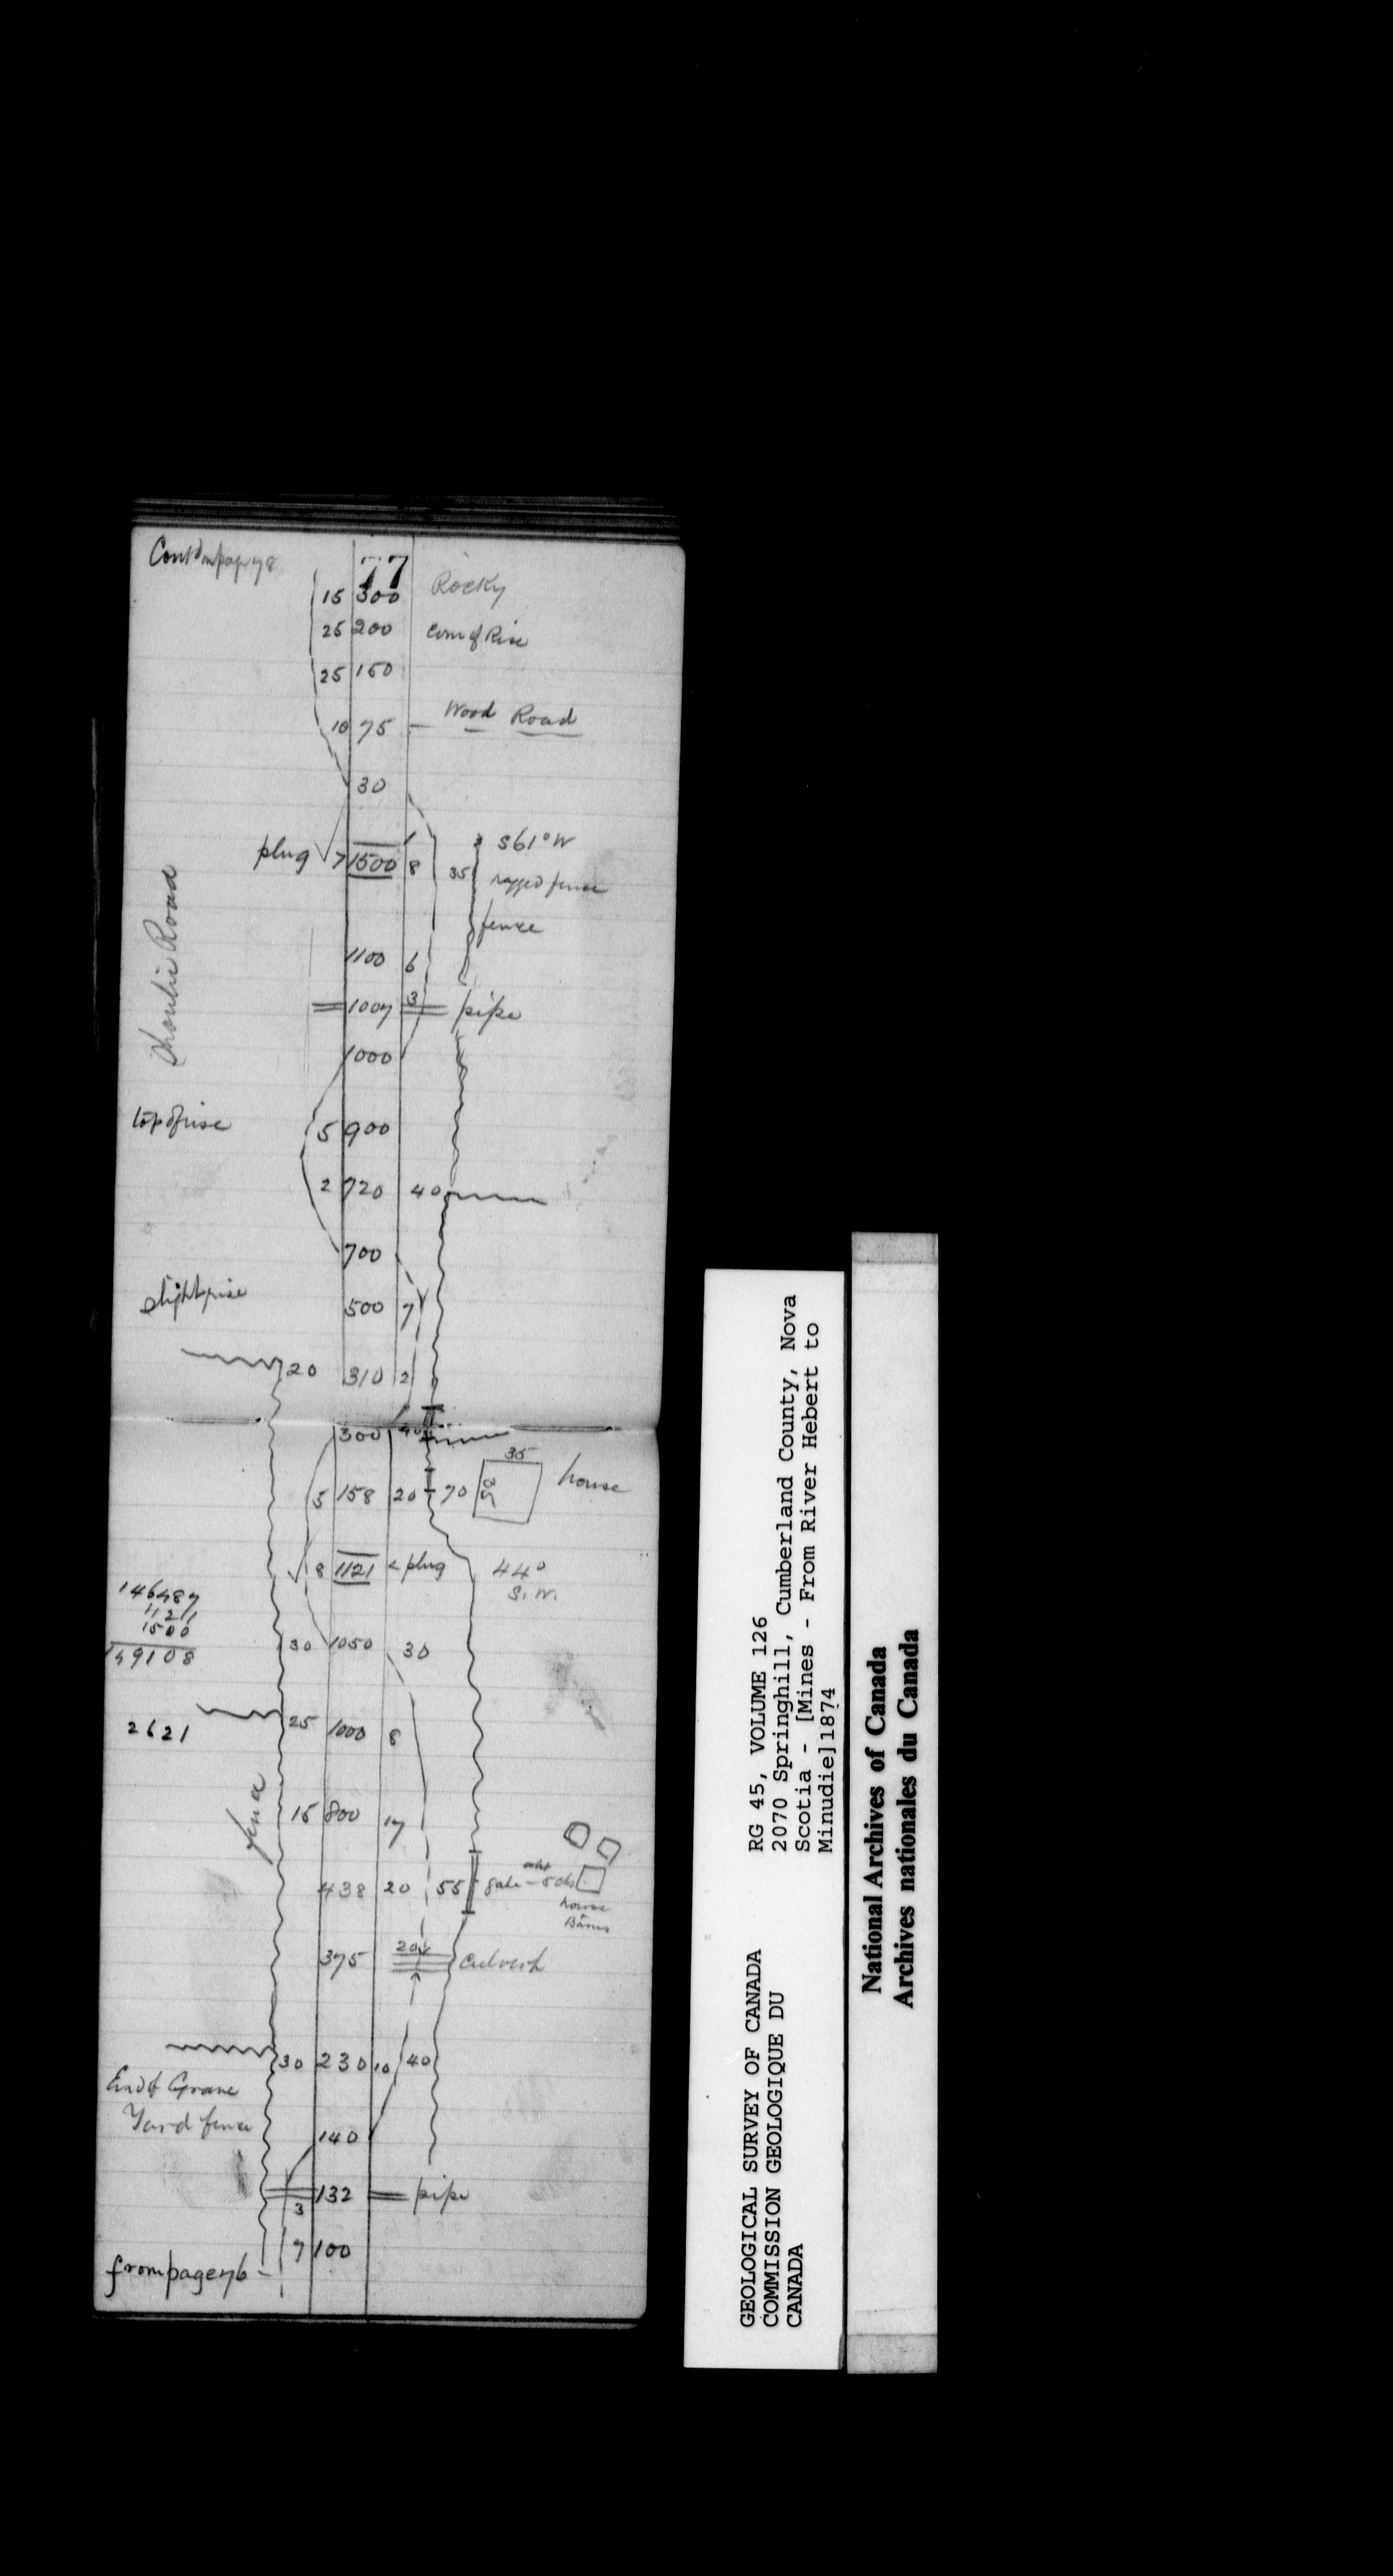 Contd on page 78
77
15 300 Rocky
25 200 Com of Rise
25 150
10 75 Wood Road
30
S61°W
plug 7 1500 8 35
ragged fence
fence
1100 6
1007 3 pipe
Road
1000
top of rise
5 900
2 720 40
700
slight rise
500 7
20 310 2
300
35
5 158 20 70 house
8 1121 plug 44°
S. W.
146487
1121
1500
149108
30 1050 30
25 1000 8
2621
fence
15 800 17
438 20 55 gate
house
Barns
375 20 Culvert
30 230 10 40
End of Grave
Yard fence
140
132 pipe
3
7 100
from page 76
GEOLOGICAL SURVEY OF CANADA
COMMISSION GEOLOGIQUE DU
CANADA
RG 45, VOLUME 126
2070 Springhill, Cumberland County, Nova
Scotia - [Mines - From River Hebert to
Minudie]1874
National Archives of Canada
Archives nationales du Canada